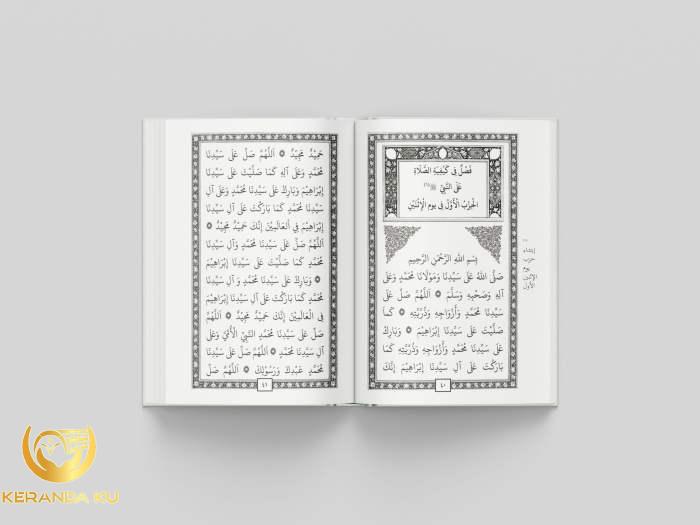 فَصْلٌ فِي كَيْفِيَةِ الصَّلَاةِ
عَلَى النَّبِيِّ ﷺ
الْحِزْبُ الْأَوَّلُ فِي يوم الْإِثْنَيْنِ
بِسْمِ اللَّهِ الرَّحْمَنِ الرَّحِيمِ
صَلَّى اللَّهُ عَلَى سَيِّدِنَا وَمَوْلَانَا مُحَمَّدٍ وَعَلَى
آلِهِ وَصَحْبِهِ وَسَلَّمَ ۞ اَللَّهُمَّ صَلِّ عَلَى
سَيِّدِنَا مُحَمَّدٍ وَأَزْوَاجِهِ وَذُرِّيَّتِهِ ۞ كَمَا
صَلَّيْتَ عَلَى سَيِّدِنَا إِبْرَاهِيْمَ ۞ وَبَارِكْ
عَلَى سَيِّدِنَا مُحَمَّدٍ وَأَزْوَاجِهِ وَذُرِّيَّتِهِ كَمَا
بَارَكْتَ عَلَى آلِ سَيِّدِنَا إِبْرَاهِيْمَ إِنَّكَ
٤٠
إبتداء
حزب
يوم
الإثنين
الأول
حَمِيْدٌ مَجِيْدٌ ۞ اَللَّهُمَّ صَلِّ عَلَى سَيِّدِنَا
مُحَمَّدٍ وَعَلَى آلِهِ كَمَا صَلَّيْتَ عَلَى سَيِّدِنَا
إِبْرَاهِيْمَ وَبَارِكْ عَلَى سَيِّدِنَا مُحَمَّدٍ وَعَلَى آلِ
سَيِّدِنَا مُحَمَّدٍ كَمَا بَارَكْتَ عَلَى آلِ سَيِّدِنَا
إِبْرَاهِيْمَ فِي الْعَالَمِيْنَ إِنَّكَ حَمِيْدٌ مَجِيْدٌ ۞
اَللَّهُمَّ صَلِّ عَلَى سَيِّدِنَا مُحَمَّدٍ وَآلِ سَيِّدِنَا
مُحَمَّدٍ كَمَا صَلَّيْتَ عَلَى سَيِّدِنَا إِبْرَاهِيْمَ
۞ وَبَارِكْ عَلَى سَيِّدِنَا مُحَمَّدٍ وَ آلِ سَيِّدِنَا
مُحَمَّدٍ كَمَا بَارَكْتَ عَلَى آلِ سَيِّدِنَا إِبْرَاهِيْمَ
فِي الْعَالَمِيْنَ إِنَّكَ حَمِيْدٌ مَجِيْدٌ ۞ اَللَّهُمَّ
صَلِّ عَلَى سَيِّدِنَا مُحَمَّدٍ النَّبِيِّ الْأُمِّيِّ وَعَلَى
آلِ سَيِّدِنَا مُحَمَّدٍ ۞ اَللَّهُمَّ صَلِّ عَلَى سَيِّدِنَا
مُحَمَّدٍ عَبْدِكَ وَرَسُوْلِكَ ۞ اَللَّهُمَّ صَلِّ
٤١
KERANDA KU